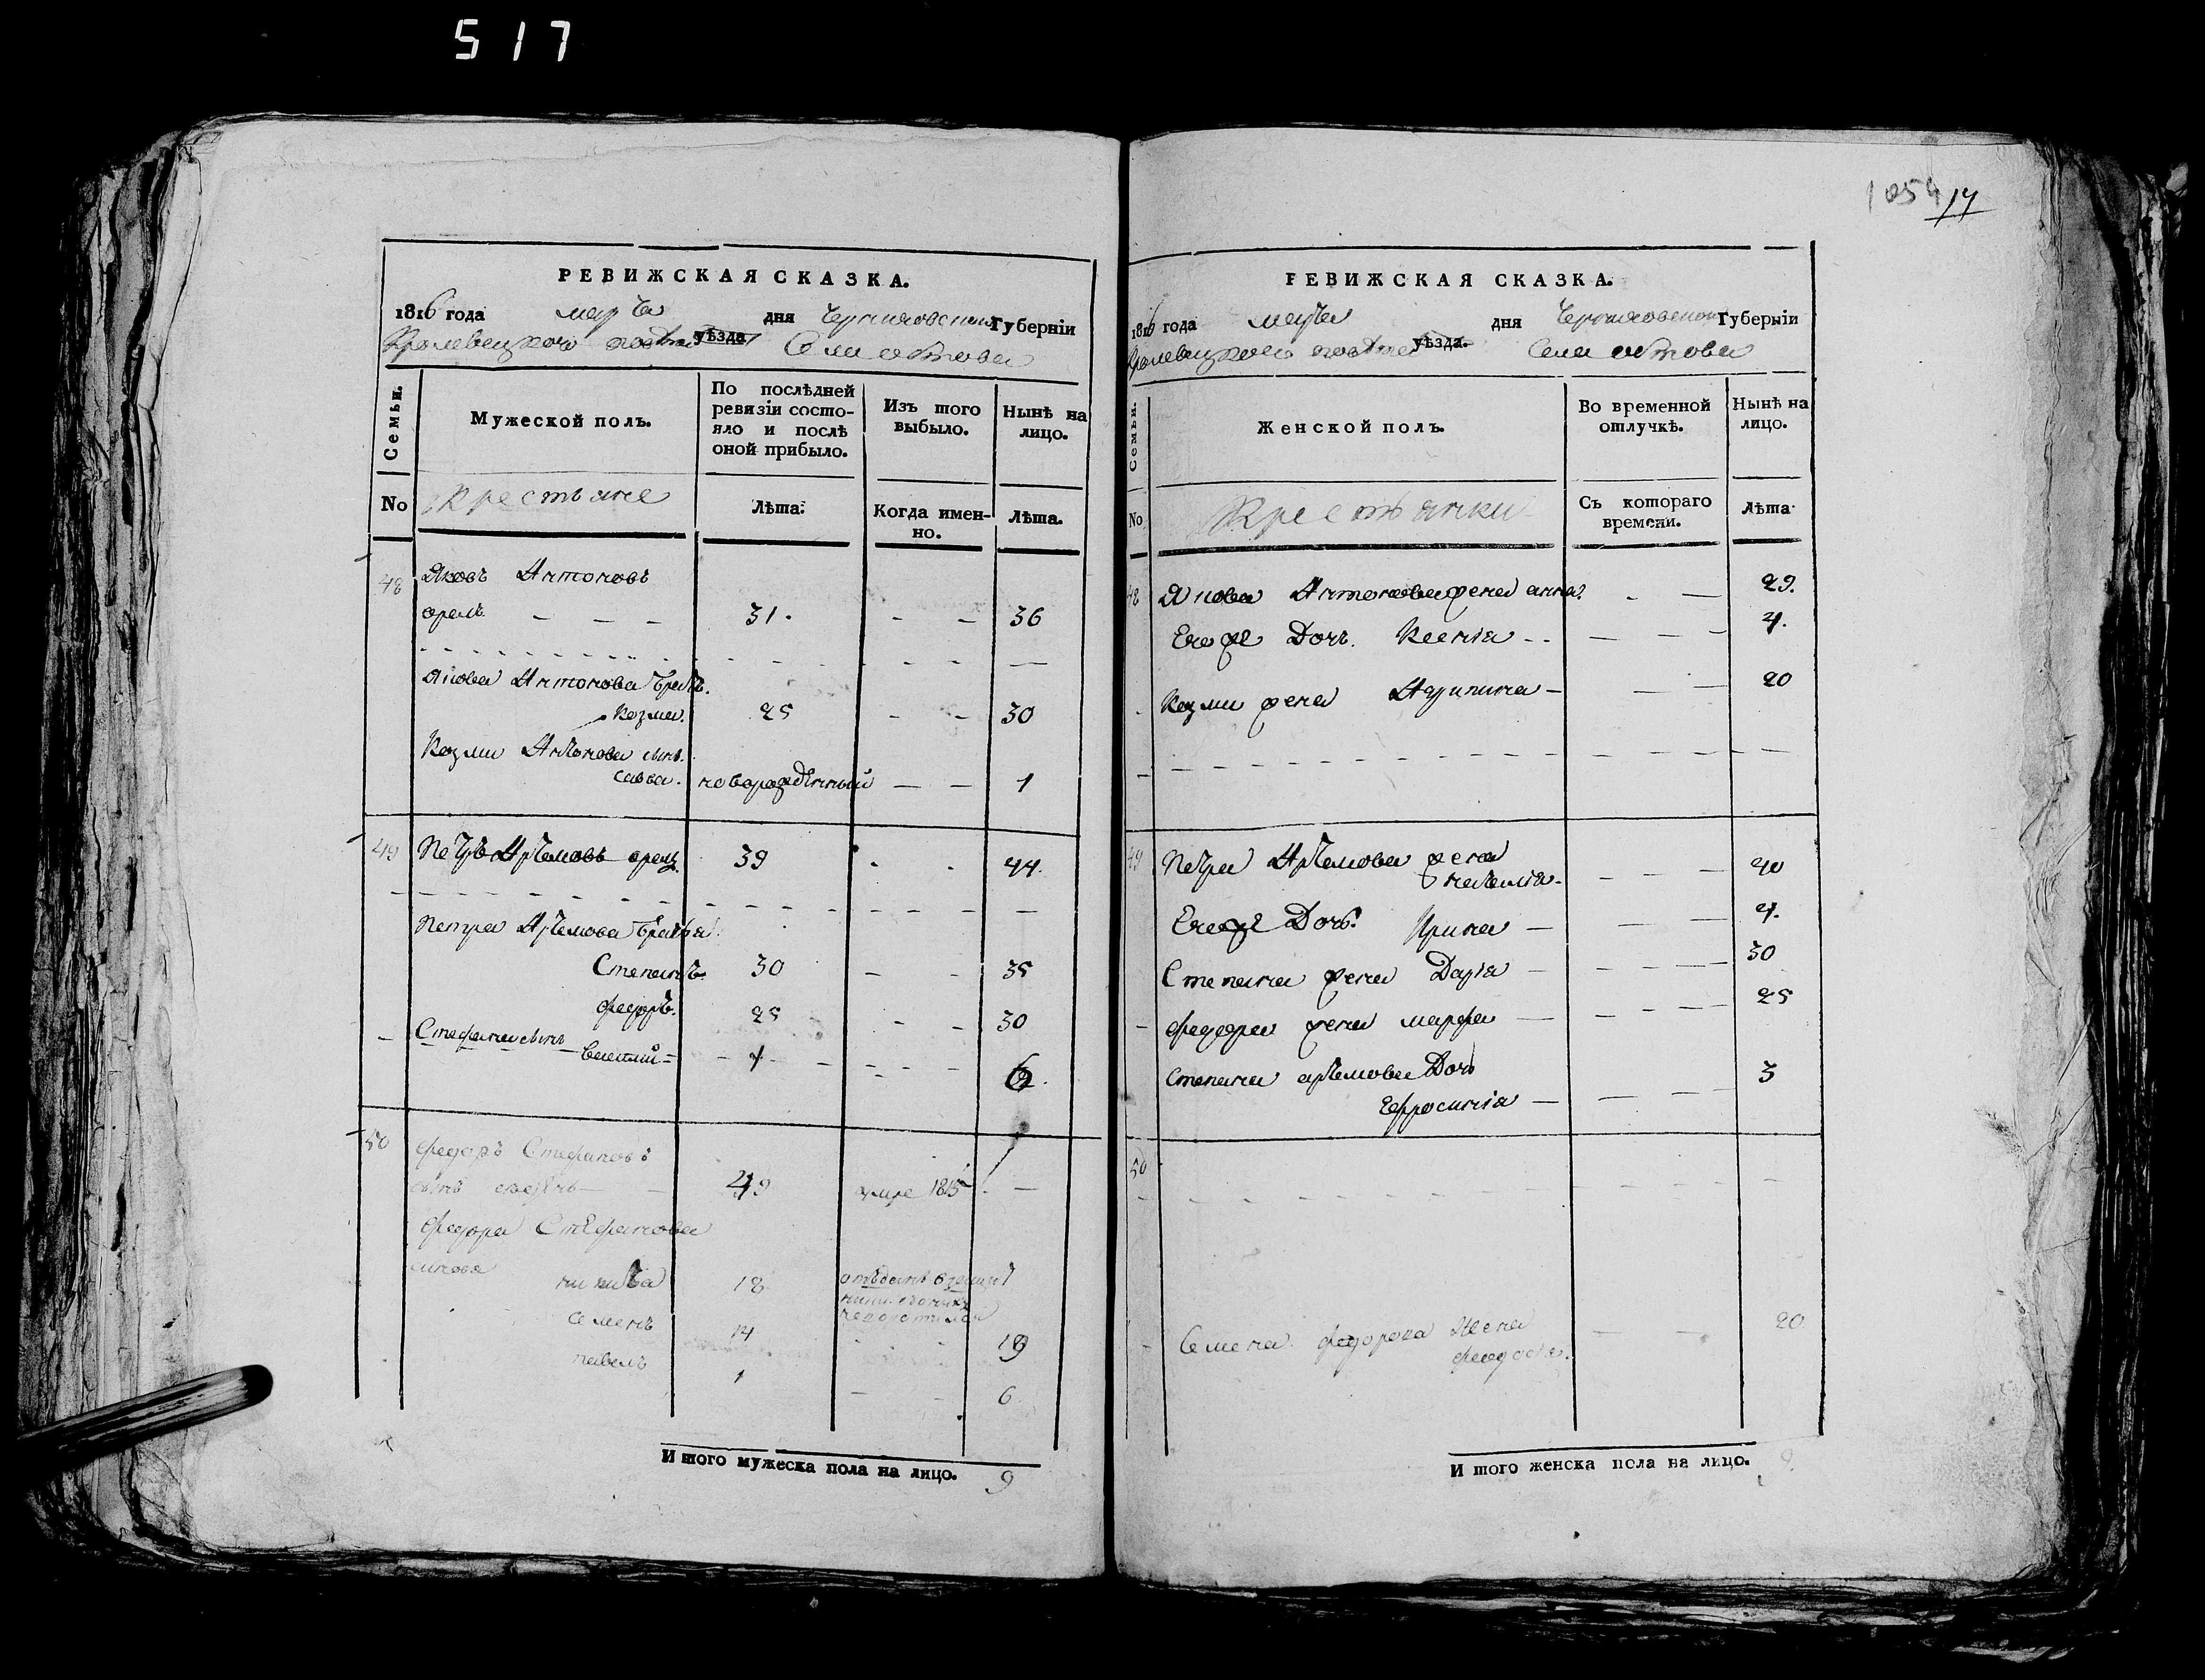 517
1054 17
РЕВИЖСКАЯ СКАЗКА.
1816 года марта дня Черниговской Губерніи
Кролевецкого повѣта уѣзда Села
Семьи.
Мужеской полъ.
По послѣдней ревизіи состо-
яло и послѣ оной прибыло.
Изъ того выбыло.
Нынѣ на лицо.
No
Крестьяне
Лѣта.
Когда имен-
но.
Лѣта.
48 Яковъ Антоновъ
орелъ — — — 31. — — 36
Якова Антонова братъ
Козма. 25 — — 30
Козми Антонова сынъ.
Савва. новорожденный — — 1
49 Петръ Артемовъ орелъ 39 44.
Петра Артемова братья
Степанъ. 30 — — 35
федоръ. 25 — — 30
Стефана сынъ
Василий 6
50 федоръ Стефановъ
сынъ 49 умре 1815 —
федора Стефанова
никита 18
семенъ 14 — — 19
павелъ 1 — — 6
Итого мужеска пола на лицо. 9
РЕВИЖСКАЯ СКАЗКА.
1816 года марта дня Черниговской Губерніи
Кролевецкого повѣта уѣзда. Села
Семьи.
Женской полъ.
Во временной отлучкѣ.
Нынѣ на лицо.
No
Крестьянки
Съ котораго времени.
Лѣта
48 Якова Антонова жена анна. — 29.
Егоже Дочь. Ксенія — — — 4.
Козми жена — — 20
49 Петра Артемова жена
наталія — — — 40
Егоже Дочь. Ирина — — — 4.
Степана жена Дарія — — — 30
федора жена марфа — — — 25
степана артемова Дочь
Ефросинія — — — 3
50
Семена федорова жена
феодосія. — — 20
Итого женска пола на лицо.